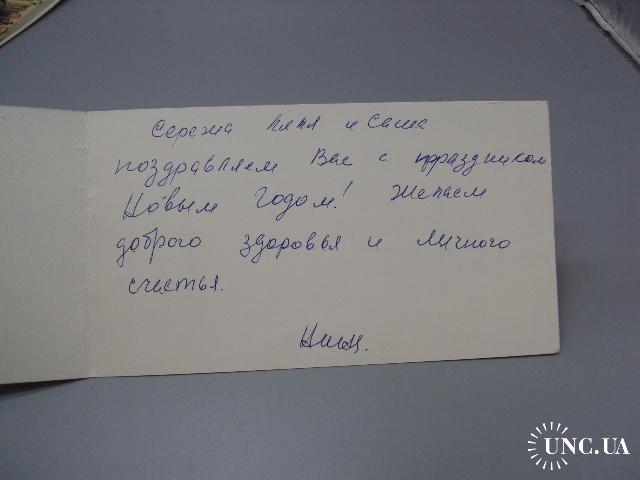 Сережа Катя и Саша
поздравляем Вас с праздником
Новым Годом! Желаем
доброго здоровья и личного
счастья.
UNC.UA